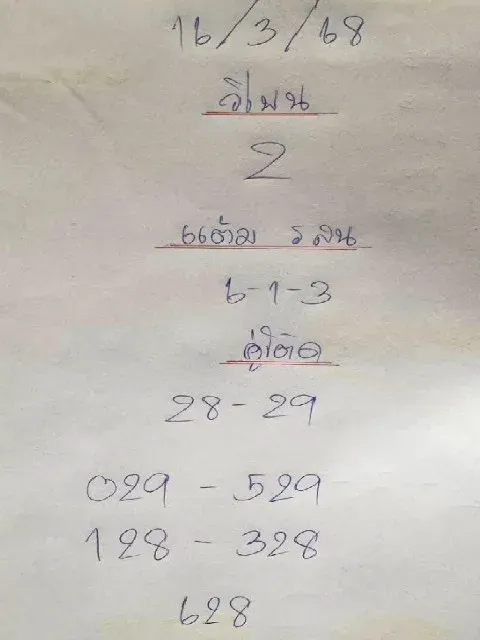 16/3/68
วิเมน
2
แต้ม รสน
6-1-3
คู่โต๊ด
28-29
029 - 529
128 - 328
628